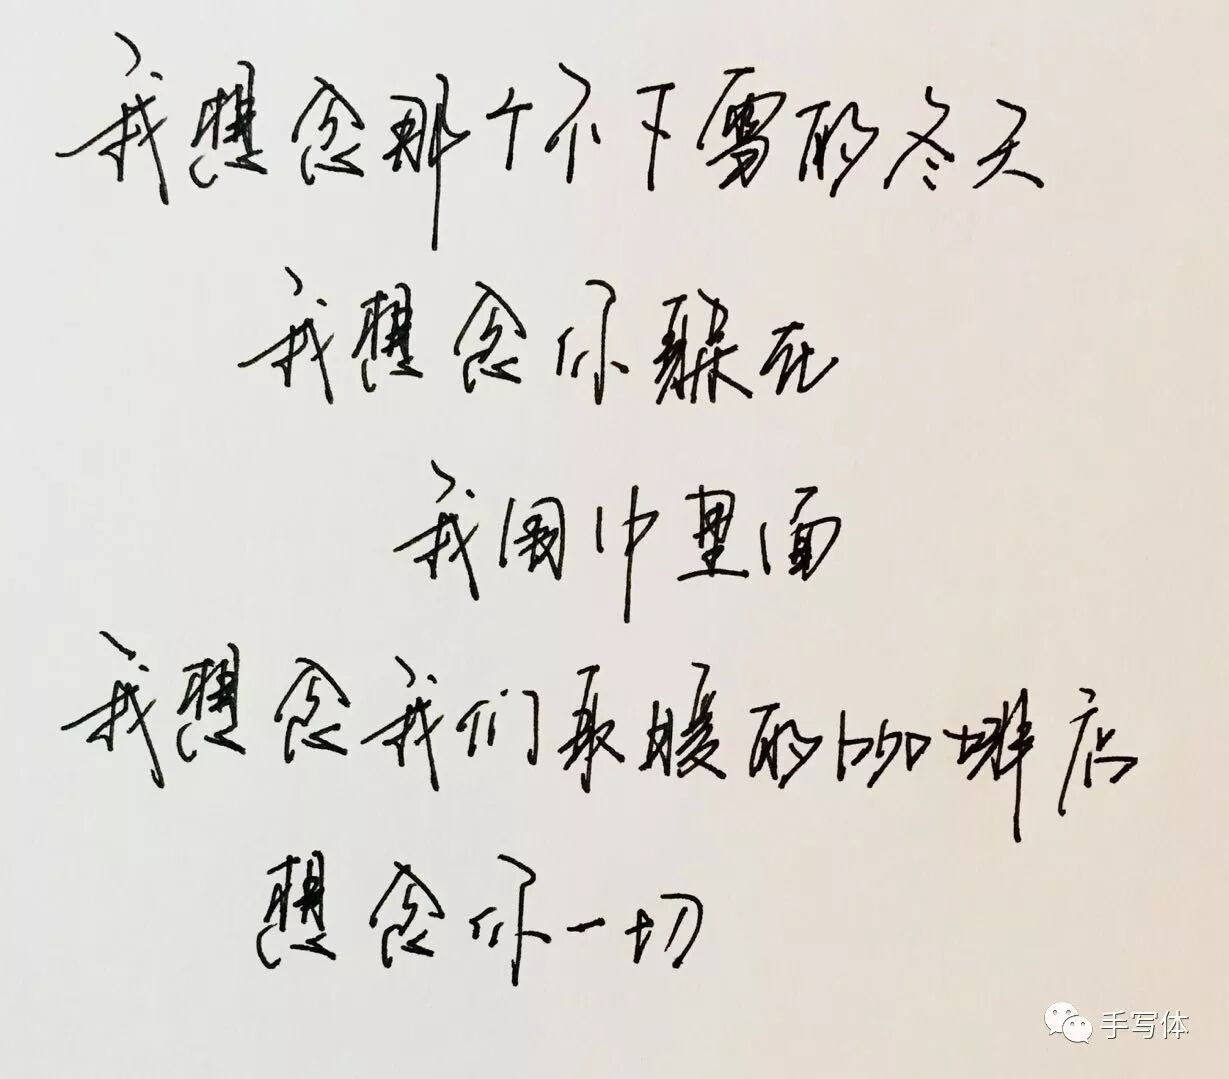 我想念那个不下雪的冬天
我想念你躲在
我围巾里面
我想念我们取暖的咖啡店
想念你一切
手写体